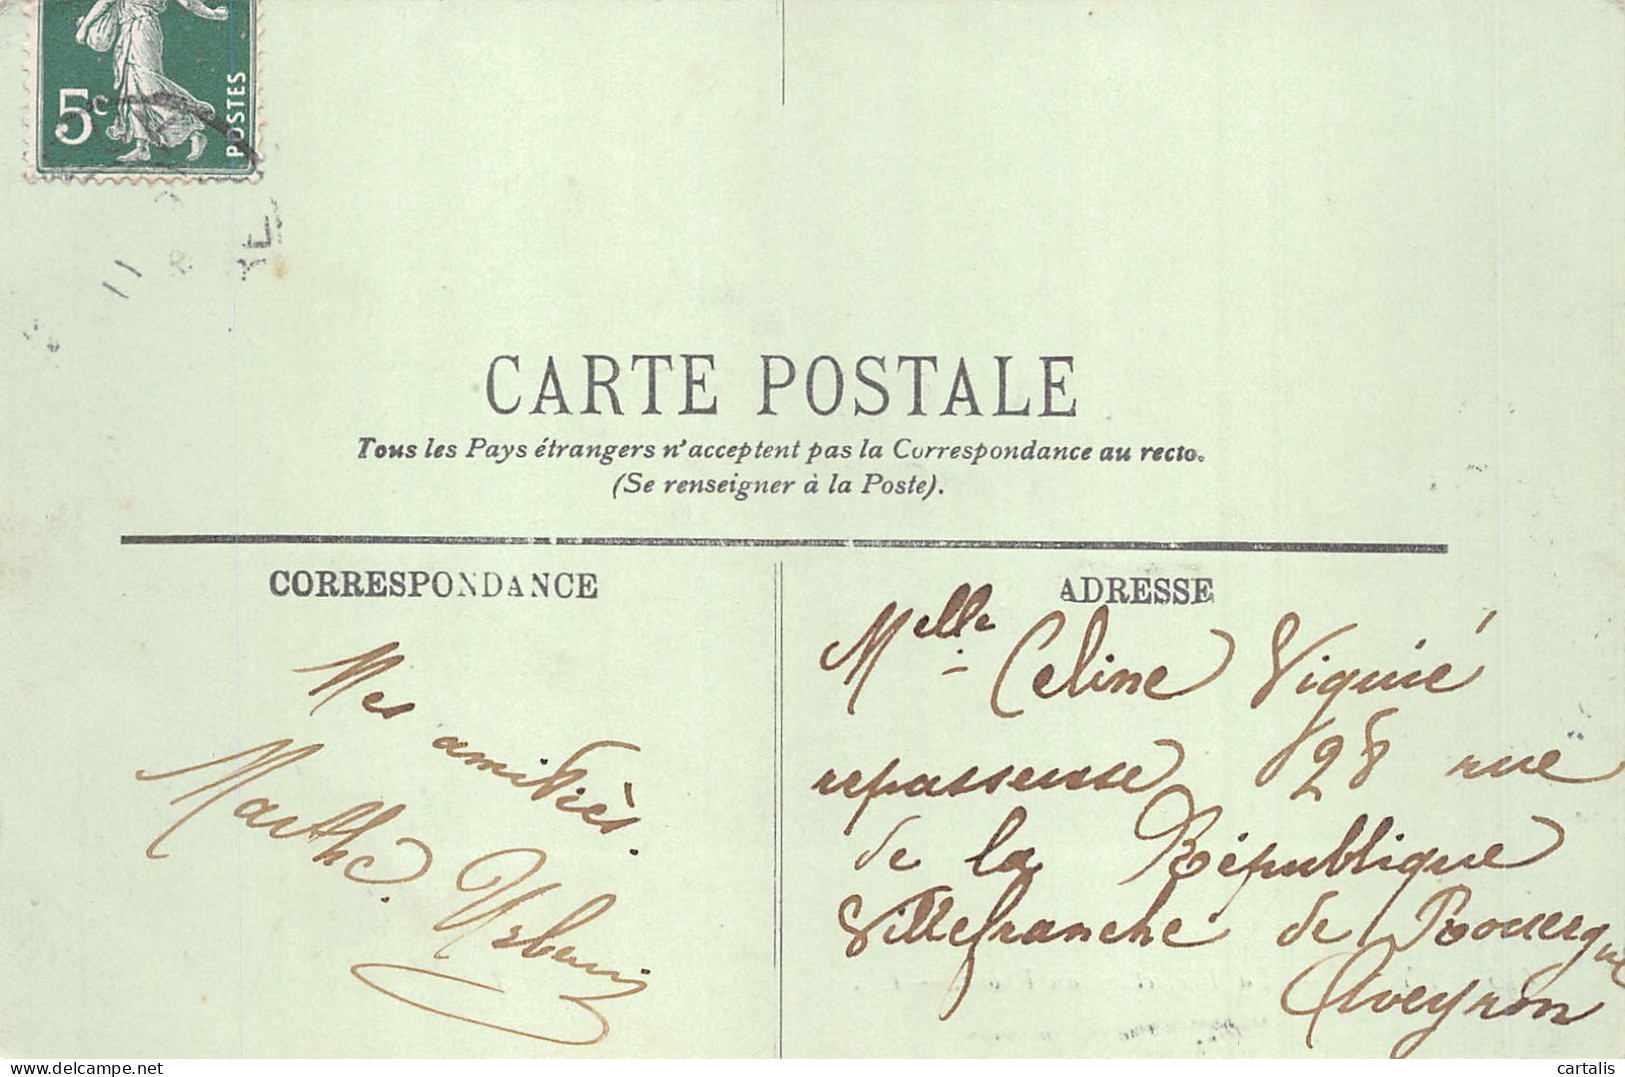 5c
POSTES
11
CARTE POSTALE
Tous les Pays étrangers n'acceptent pas la Correspondance au recto.
(Se renseigner à la Poste).
CORRESPONDANCE
Mes amitiés.
Marthe
ADRESSE
Melle Celine Viguié
repasseuse 28 rue
de la République
Villefranche de Rouergue
Aveyron
www.delcampe.net
cartalis